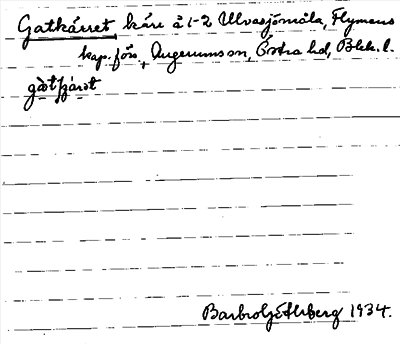 Gatkärret kärr å 1-2 Ulvasjömåla, Flymens
kap. förs., Augerums sn, Östra hd, Blek. l.
Barbro Ahlberg 1934.